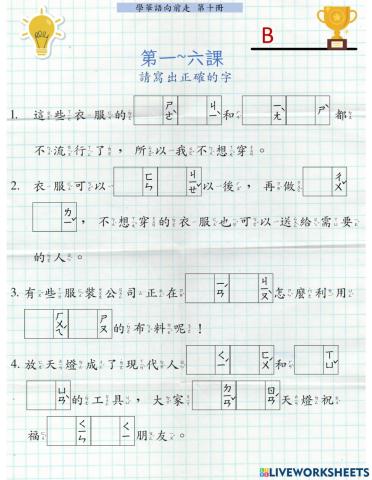 學華語向前走 第十冊
B
第一~六課
請寫出正確的字
1. 這些衣服的 ㄕㄜˋ ㄐㄧˋ 和 ㄧㄤˋ ㄕˋ 都
不流行了，所以我不想穿。
2. 衣服可以 ㄷㄢ ㄐㄧㄝˇ 以後，再做 ㄔㄨˇ
ㄌㄧˇ，不想穿的衣服也可以送給需要
的人。
3. 有些服裝公司正在 ㄧㄢˊ ㄐㄧㄡˋ 怎麼利用
ㄏㄨㄟˊ ㄕㄡ 的布料呢！
4. 放天燈成了現代人 ㄑㄧˊ ㄈㄨˊ 和 ㄒㄩˇ
ㄩㄢˋ 的工具，大家 ㄉㄧㄢˇ ㄖㄢˊ 天燈祝
福 ㄑㄧㄣ ㄑㄧ 朋友。
LIVEWORKSHEETS